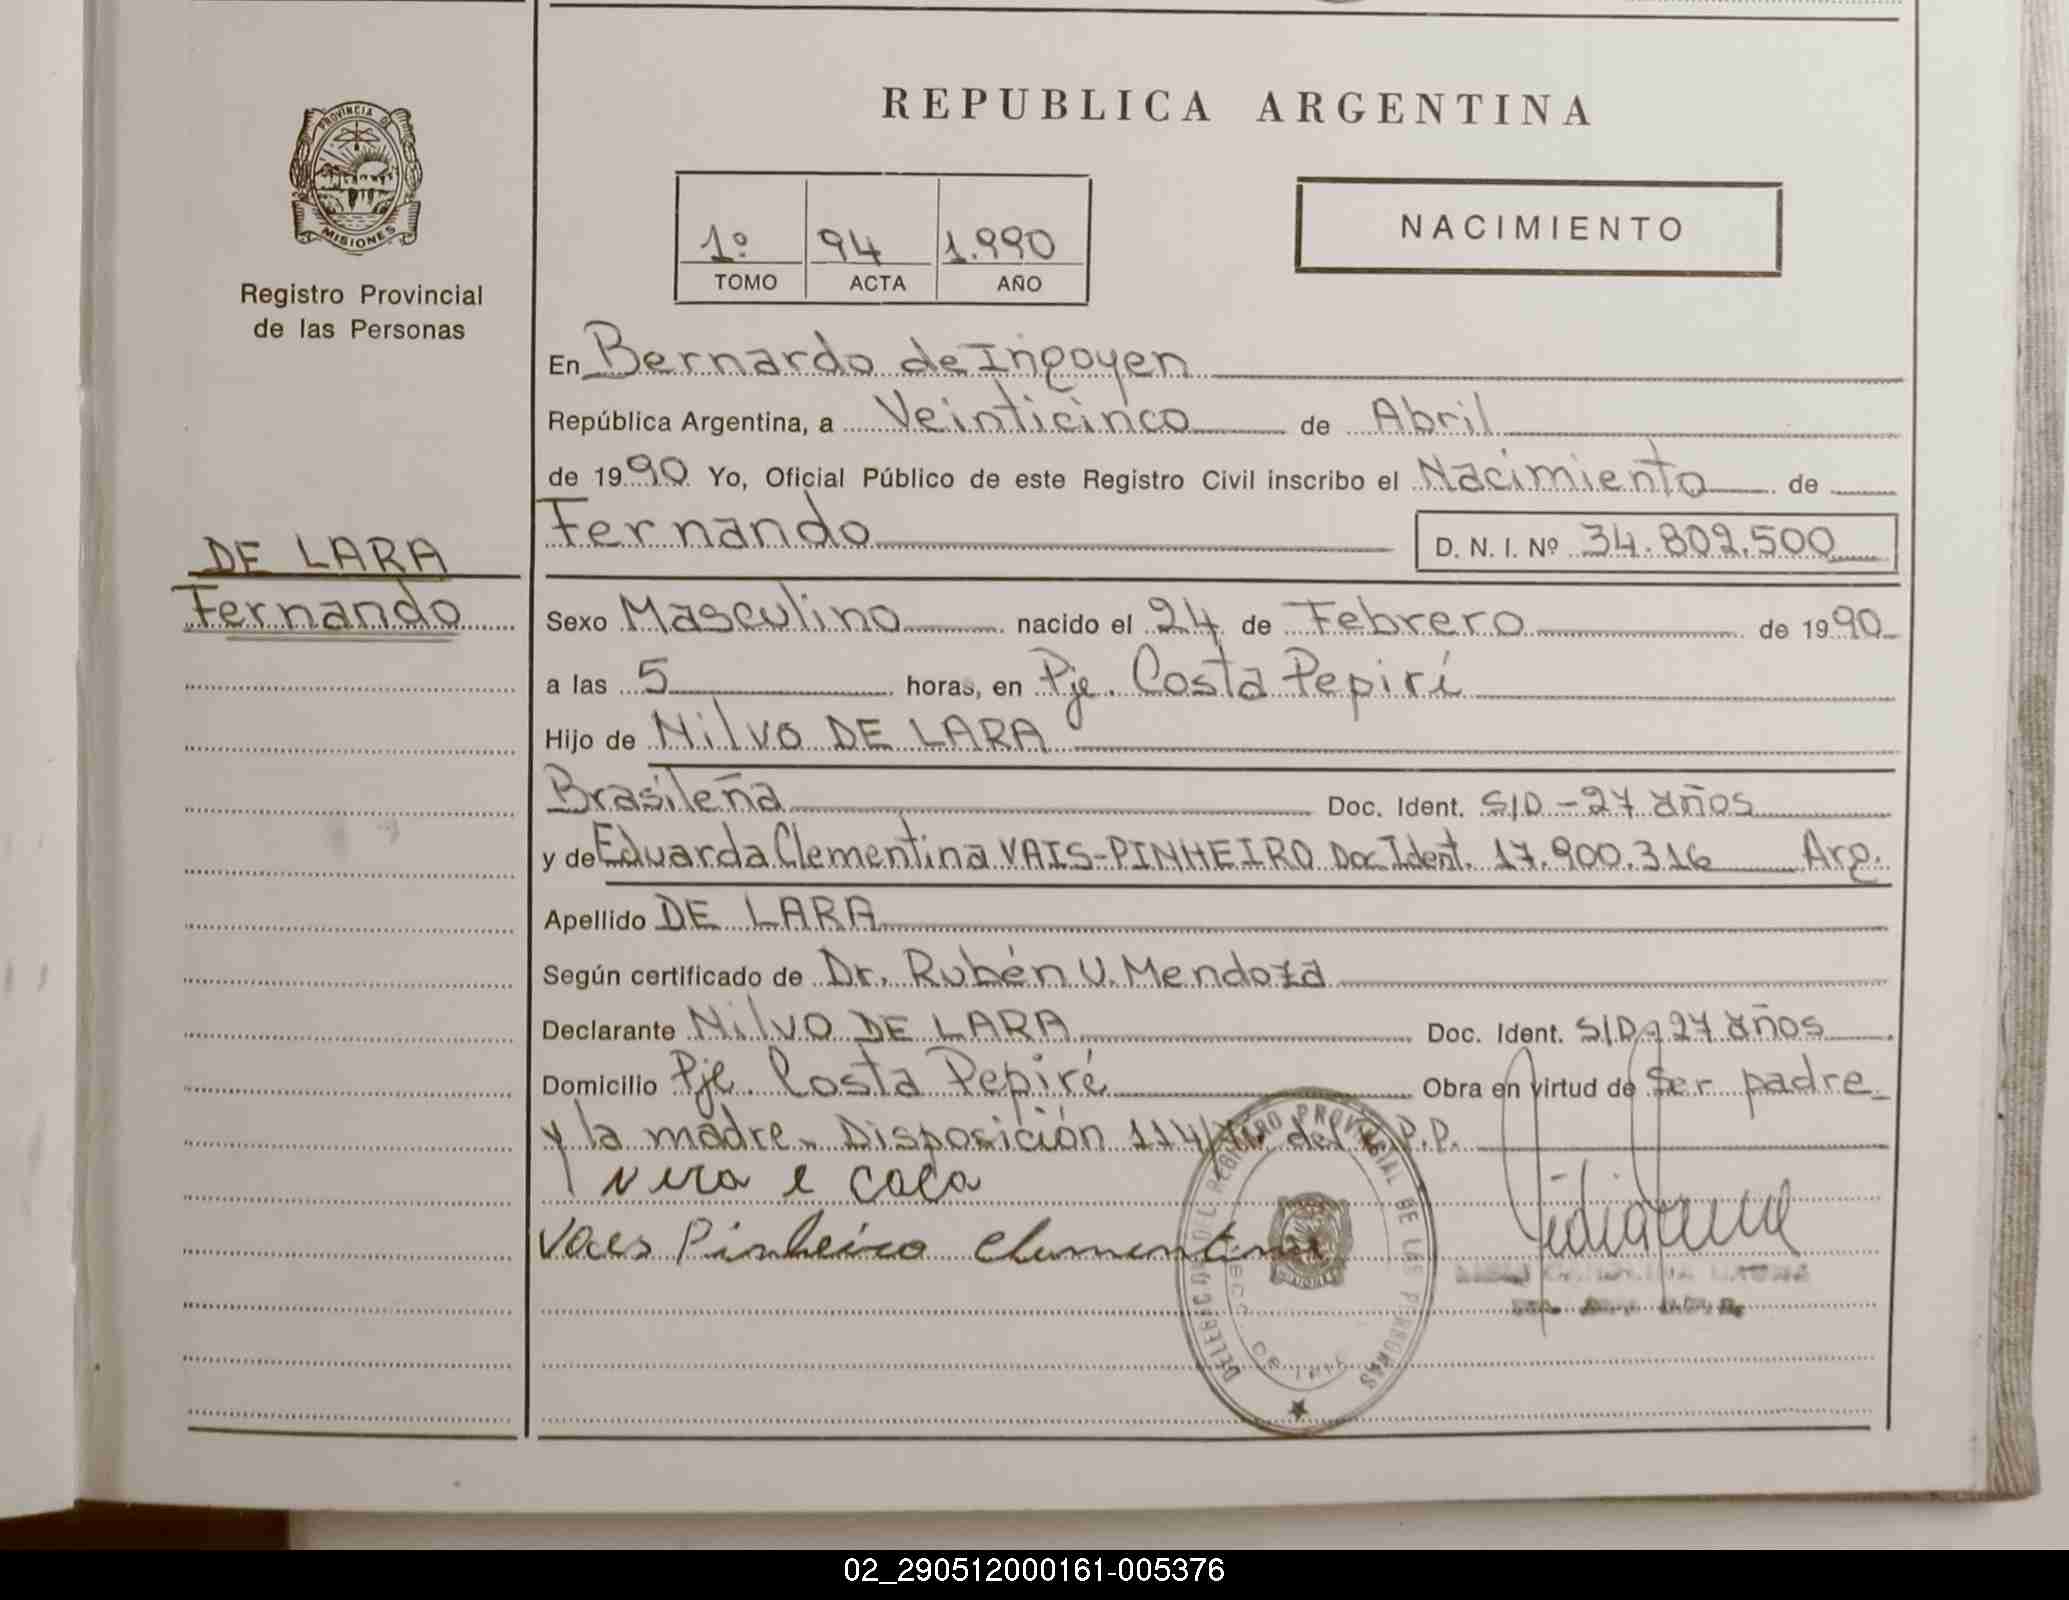 REPUBLICA ARGENTINA
PROVINCIA DE
MISIONES
Registro Provincial
de las Personas
1º 94 1.990
TOMO ACTA AÑO
NACIMIENTO
En Bernardo de Irigoyen
República Argentina, a Veinticinco de Abril
de 1990 Yo, Oficial Público de este Registro Civil inscribo el Nacimiento de
Fernando D. N. I. Nº 34.809.500
DE LARA
Fernando
Sexo Masculino nacido el 24 de Febrero de 1990
a las 5 horas, en Pje. Costa Pepirí
Hijo de Nilvo DE LARA
Brasileña Doc. Ident. S/D.-27 años
y de Eduarda Clementina VAIS-PINHEIRO Doc Ident. 17.900.316 Arg.
Apellido DE LARA
Según certificado de Dr. Rubén V. Mendoza
Declarante Nilvo DE LARA Doc. Ident. S/D.-27 años
Domicilio Pje. Costa Pepirí Obra en virtud de Ser padre
y la madre. Disposición 114/ del P.P.
Vaes Pinheiro Clementina
PROVINCIAL DE LAS PERSONAS
02_290512000161-005376